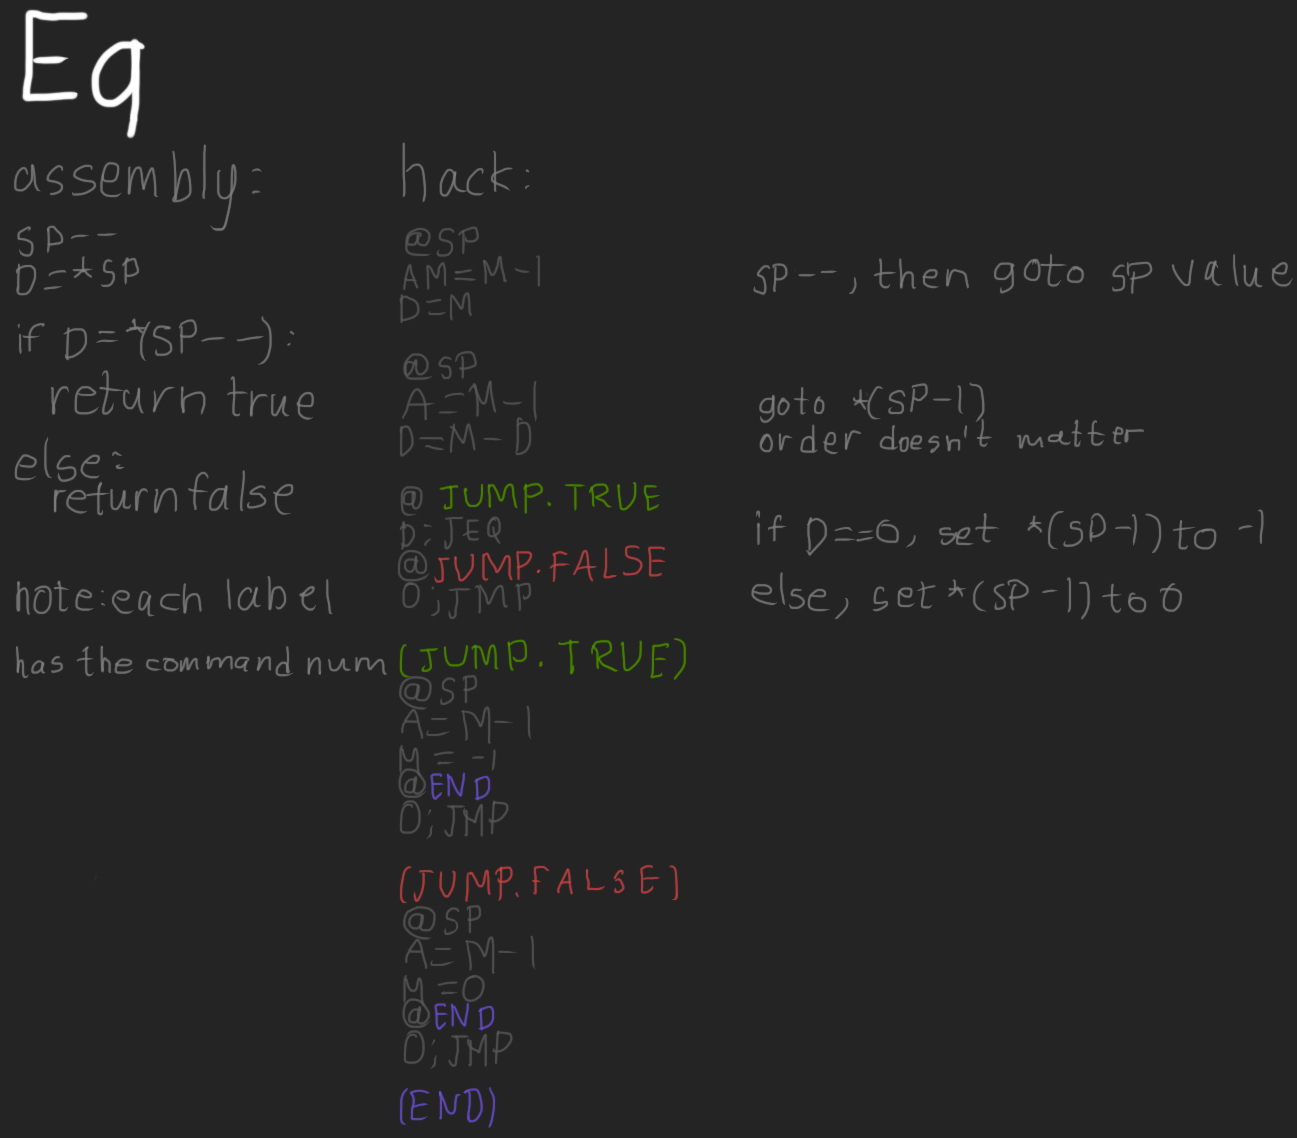 Eq
assembly:
SP--
D=*SP
if D=*(SP--):
return true
else:
return false
note: each label
has the command num
hack:
@SP
AM=M-1
D=M
@SP
A=M-1
D=M-D
@JUMP.TRUE
D;JEQ
@JUMP.FALSE
0;JMP
(JUMP.TRUE)
@SP
A=M-1
M=-1
@END
0;JMP
(JUMP.FALSE)
@SP
A=M-1
M=0
@END
0;JMP
(END)
SP--, then goto SP value
goto *(SP-1)
order doesn't matter
if D==0, set *(SP-1) to -1
else, set *(SP-1) to 0